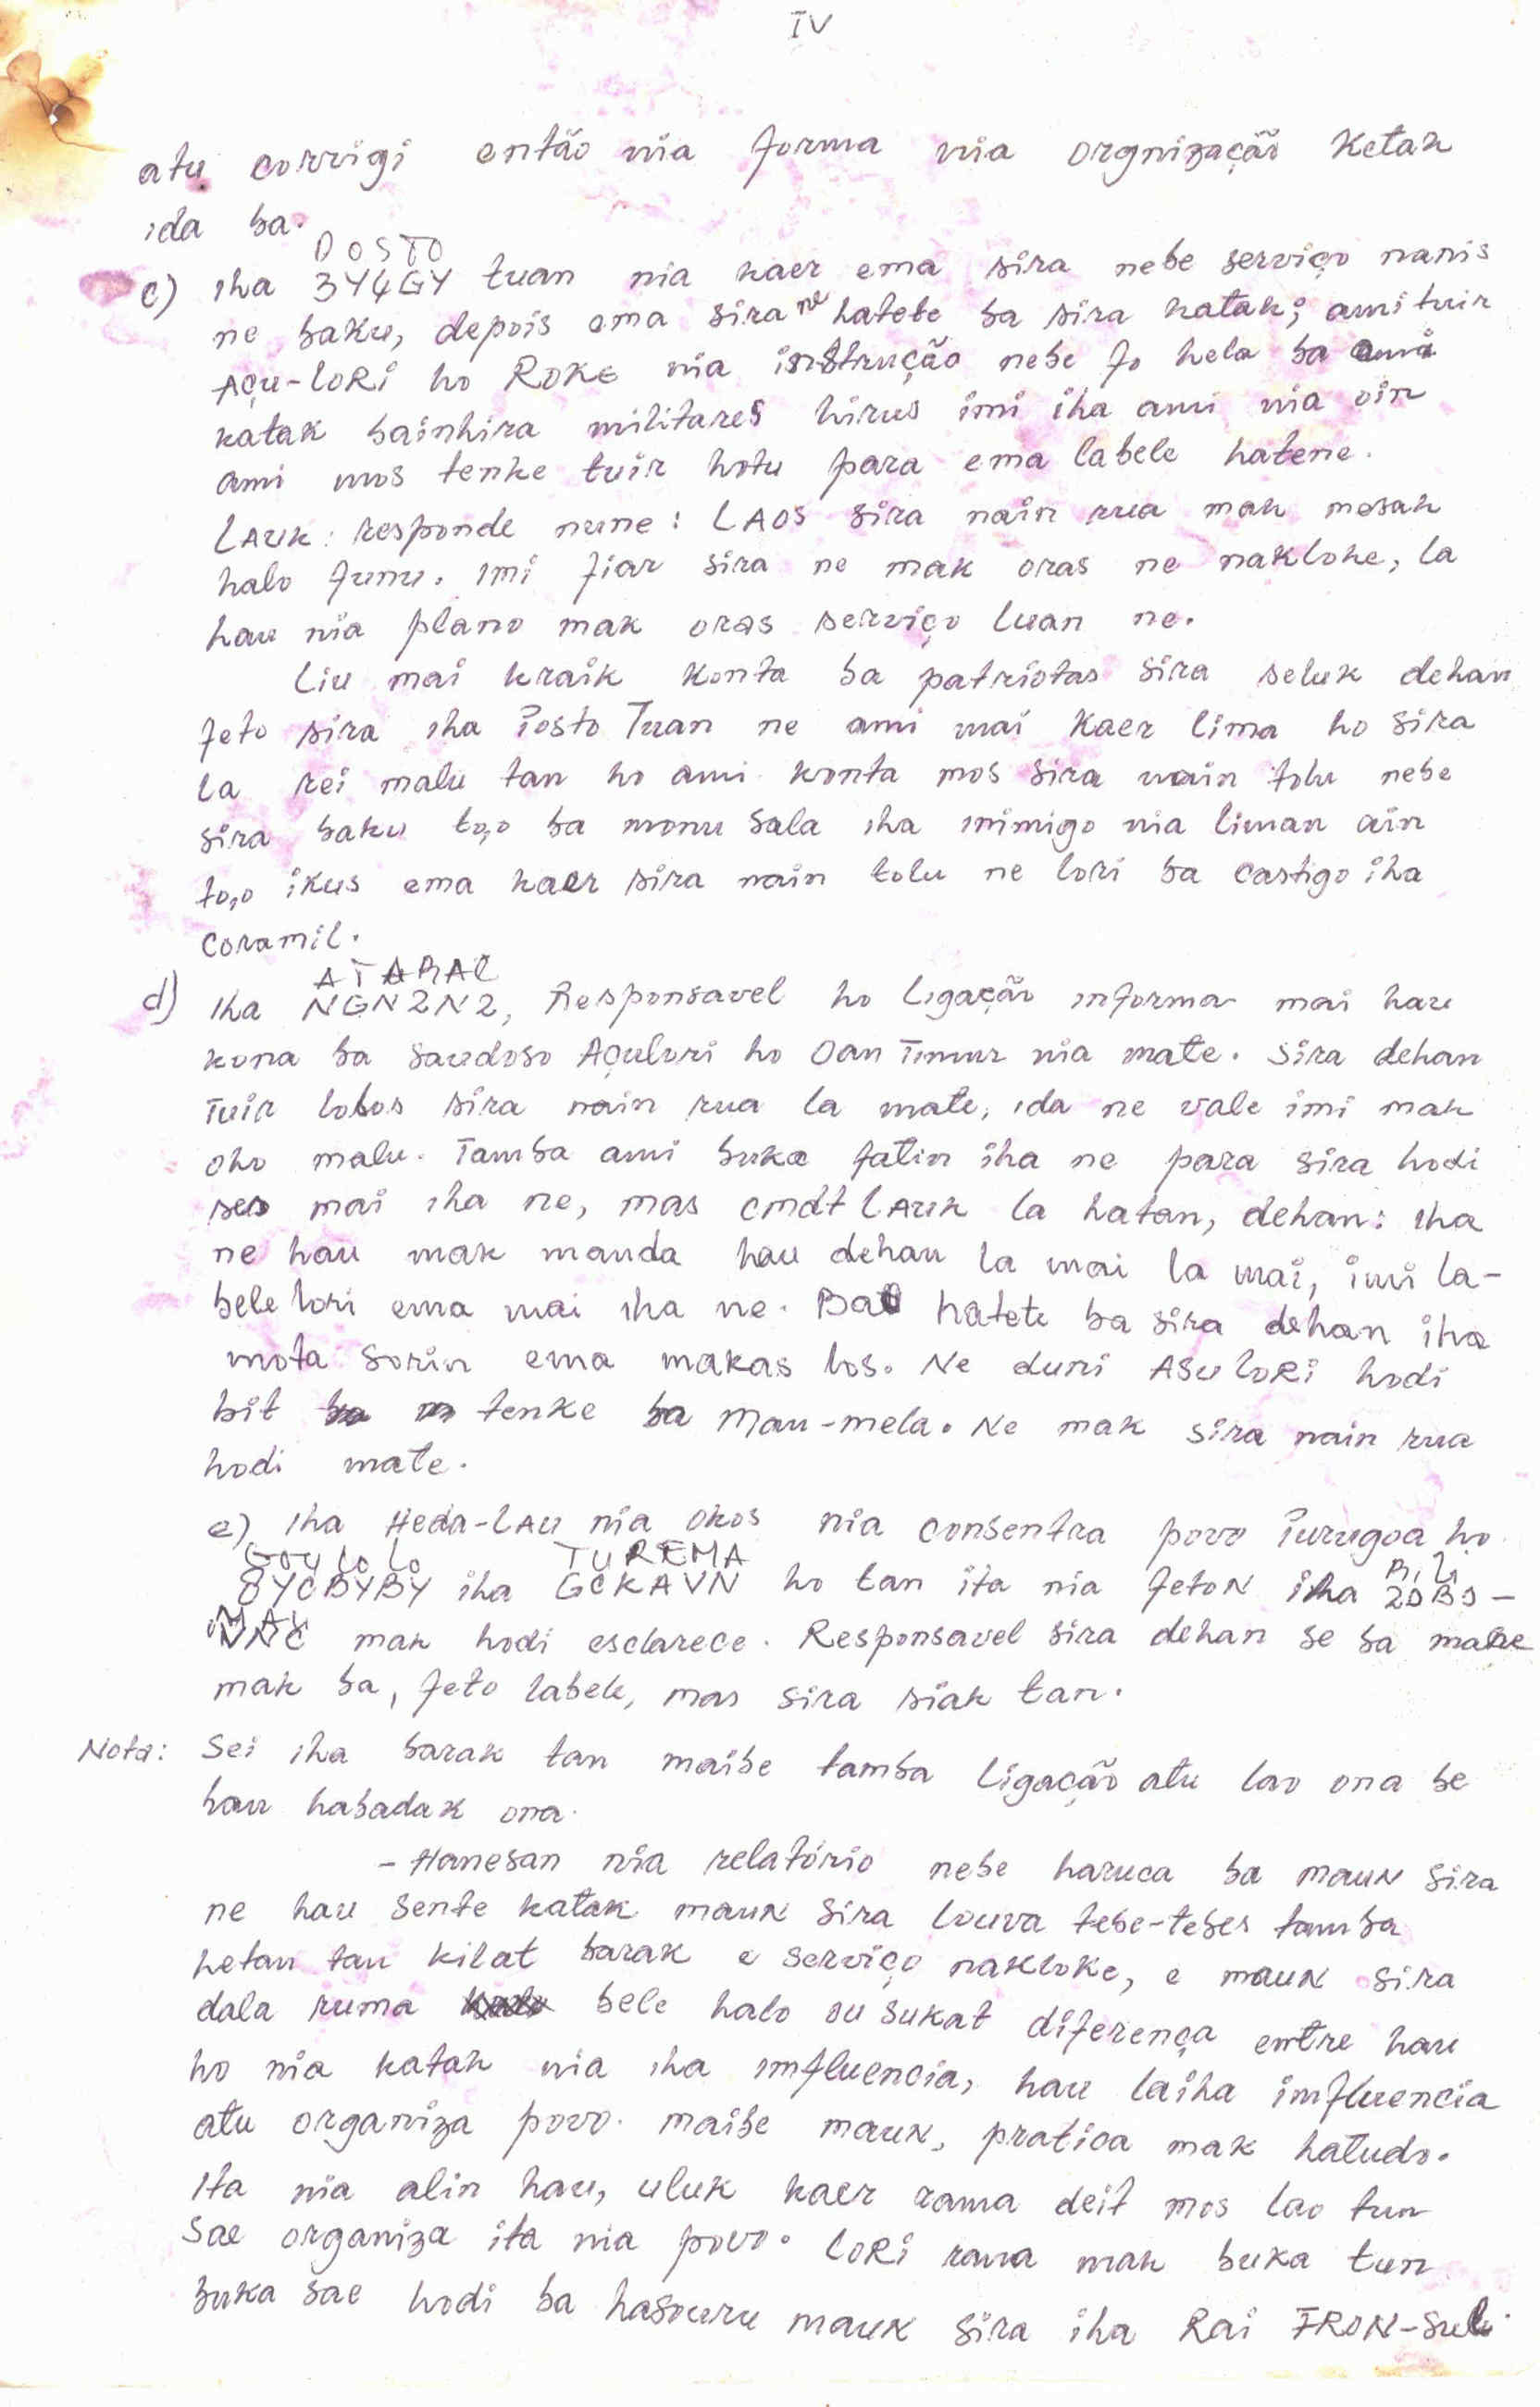 IV
atu corrigi então nia forma nia orgnização Ketak
ida ba.
POSTO
c) iha 3Y4GY tuan nia kaer ema sira nebe serviço nanis
ne baku, depois ema sira ne hatete ba sira katak; ami tuir
Açu-lORi ho ROKE nia instrução nebe fo hela ba ami
katak bainhira militares hirus imi iha ami nia oin
ami mos tenke tuir hotu para ema labele hatene.
LAUK: responde nune: LAOS sira nain rua mak mesak
halo funu. imi fiar sira ne mak oras ne nakloke, la
hau nia plano mak oras serviço luan ne.
Liu mai kraik Konta ba patriotas sira seluk dehan
feto sira iha Posto Tuan ne ami mai Kaer lima ho sira
la rei malu tan ho ami konta mos sira nain tolu nebe
sira baku to,o ba monu sala iha inimigo nia liman ain
to,o ikus ema kaer sira nain tolu ne lori ba castigo iha
coramil.
ATARAC
d) Iha NGN2N2, Responsavel ho Ligação informa mai hau
kona ba saudoso Açulori ho Oan Timur nia mate. Sira dehan
Tuir lolos sira nain rua la mate, ida ne vale imi mak
oho malu. Tamba ami buka fatin iha ne para sira hodi
ses mai iha ne, mas cmdt LAUK la hatan, dehan: iha
ne hau mak manda hau dehan la mai la mai, imi la-
bele lori ema mai iha ne. Bat hatete ba sira dehan iha
mota sorin ema makas los. Ne duni ASU lORi hodi
bit tenke ba Mau-mela. Ne mak sira nain rua
hodi mate.
e) Iha Heda-LAU nia okos nia consentra povo Purugoa ho
GOULOLO TUREMA BiLi
8YCBYBY iha GCKAVN ho tan ita nia fetoN iha 2DBD-
MAU
VNC mak hodi esclarece. Responsavel sira dehan se ba mane
mak ba, feto labele, mas sira siak tan.
Nota: Sei iha barak tan maibe tamba Ligação atu lao ona be
hau habadak ona.
- Hanesan nia relatório nebe haruca ba mauN sira
ne hau sente katak mauN sira louva tebe-tebes tamba
hetan tan kilat barak e serviço nakloke, e mauN sira
dala ruma bele halo ou sukat diferença entre hau
ho nia katak nia iha imfluencia, hau laiha imfluencia
atu organiza povo. maibe mauN, pratica mak hatudo.
Ita nia alin hau, uluk kaer rama deit mos lao tun
sae organiza ita nia povo. LORi rama mak buka tun
buka sae hodi ba hasouru mauK sira iha Rai FRON-Suli